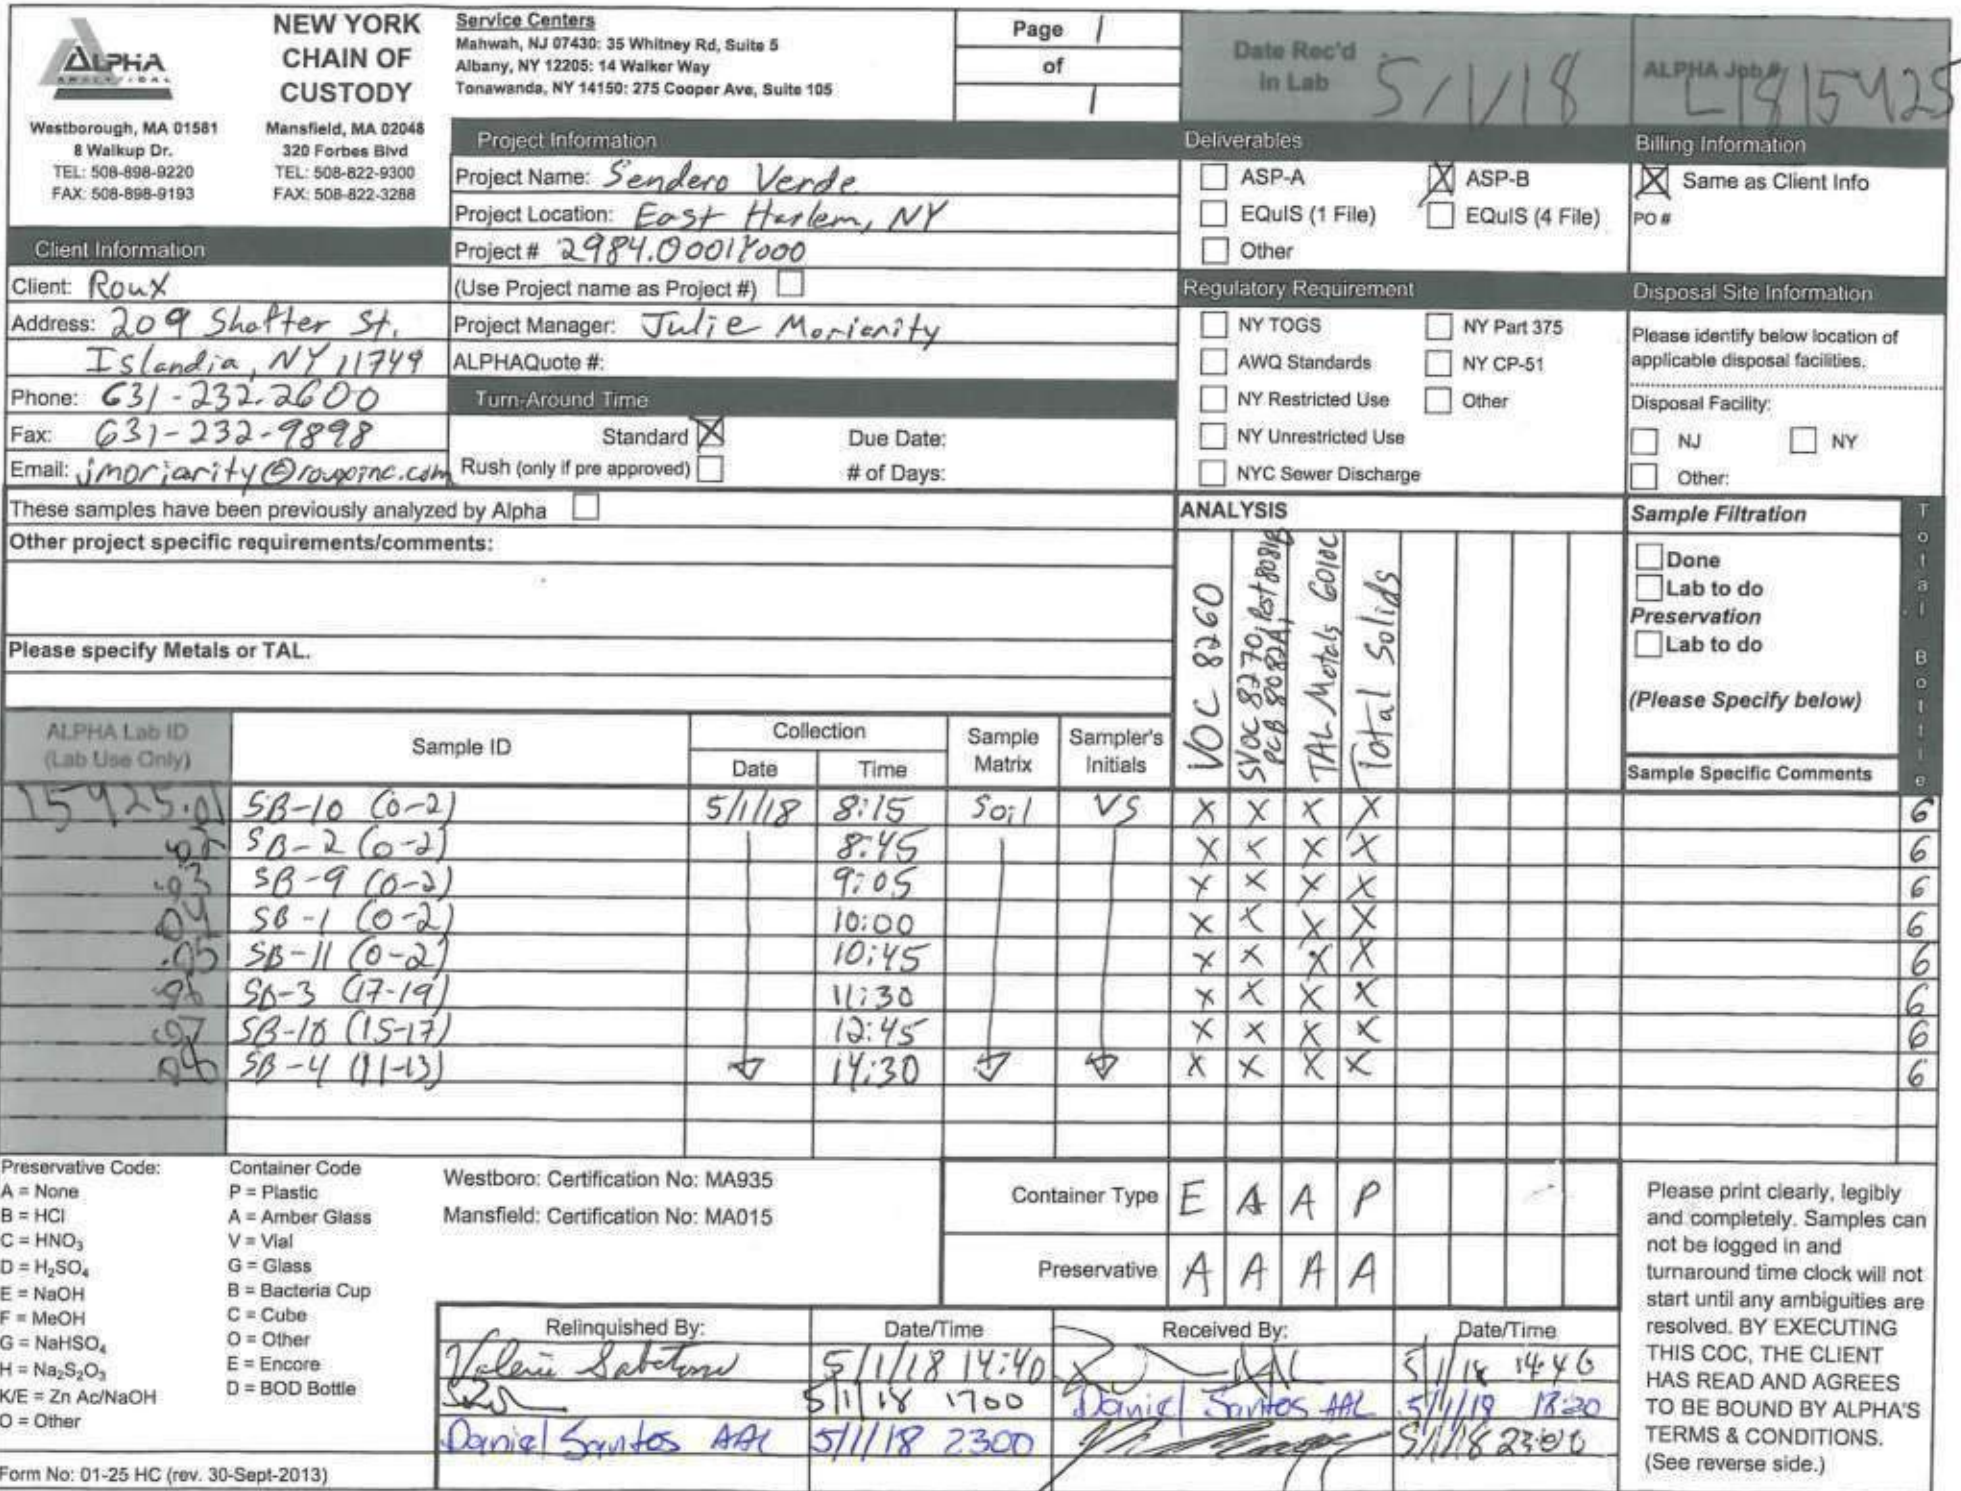 ALPHA
ANALYTICAL
NEW YORK
CHAIN OF
CUSTODY
Westborough, MA 01581
8 Walkup Dr.
TEL: 508-898-9220
FAX: 508-898-9193
Mansfield, MA 02048
320 Forbes Blvd
TEL: 508-822-9300
FAX: 508-822-3288
Service Centers
Mahwah, NJ 07430: 35 Whitney Rd, Suite 5
Albany, NY 12205: 14 Walker Way
Tonawanda, NY 14150: 275 Cooper Ave, Suite 105
Page 1
of
1
Date Rec'd
in Lab 5/1/18
ALPHA Job # L1815425
Client Information
Client: Roux
Address: 209 Shafter St.
Islandia, NY 11749
Phone: 631-232.2600
Fax: 631-232-9898
Email: jmoriarity@rouxinc.com
Project Information
Project Name: Sendero Verde
Project Location: East Harlem, NY
Project # 2984.0001Y000
(Use Project name as Project #)
Project Manager: Julie Moriarity
ALPHAQuote #:
Turn-Around Time
Standard X Due Date:
Rush (only if pre approved) # of Days:
Deliverables
ASP-A X ASP-B
EQuIS (1 File) EQuIS (4 File)
Other
Regulatory Requirement
NY TOGS NY Part 375
AWQ Standards NY CP-51
NY Restricted Use Other
NY Unrestricted Use
NYC Sewer Discharge
Billing Information
X Same as Client Info
PO #
Disposal Site Information
Please identify below location of
applicable disposal facilities.
Disposal Facility:
NJ NY
Other:
These samples have been previously analyzed by Alpha
Other project specific requirements/comments:
Please specify Metals or TAL.
ANALYSIS
VOC 8260
SVOC 8270, Pest 8081B
PCB 8082A,
TAL Metals 6010C
Total Solids
Sample Filtration
Done
Lab to do
Preservation
Lab to do
(Please Specify below)
Total Bottle
ALPHA Lab ID
(Lab Use Only)
Sample ID
Collection
Date Time
Sample
Matrix
Sampler's
Initials
Sample Specific Comments
15425.01 SB-10 (0-2) 5/1/18 8:15 Soil VS X X X X 6
.02 SB-2 (0-2) 8:45 X X X X 6
.03 SB-9 (0-2) 9:05 X X X X 6
.04 SB-1 (0-2) 10:00 X X X X 6
.05 SB-11 (0-2) 10:45 X X X X 6
.06 SB-3 (17-19) 11:30 X X X X 6
.07 SB-10 (15-17) 12:45 X X X X 6
.08 SB-4 (11-13) 14:30 X X X X 6
Preservative Code:
A = None
B = HCl
C = HNO₃
D = H₂SO₄
E = NaOH
F = MeOH
G = NaHSO₄
H = Na₂S₂O₃
K/E = Zn Ac/NaOH
O = Other
Container Code
P = Plastic
A = Amber Glass
V = Vial
G = Glass
B = Bacteria Cup
C = Cube
O = Other
E = Encore
D = BOD Bottle
Westboro: Certification No: MA935
Mansfield: Certification No: MA015
Container Type E A A P
Preservative A A A A
Relinquished By: Date/Time Received By: Date/Time
Valerie 5/1/18 14:40 5/1/18 14:40
5/1/18 1700 Daniel Santos AAL 5/1/18
Daniel Santos AAL 5/1/18 2300 5/1/18 23:00
Please print clearly, legibly
and completely. Samples can
not be logged in and
turnaround time clock will not
start until any ambiguities are
resolved. BY EXECUTING
THIS COC, THE CLIENT
HAS READ AND AGREES
TO BE BOUND BY ALPHA'S
TERMS & CONDITIONS.
(See reverse side.)
Form No: 01-25 HC (rev. 30-Sept-2013)